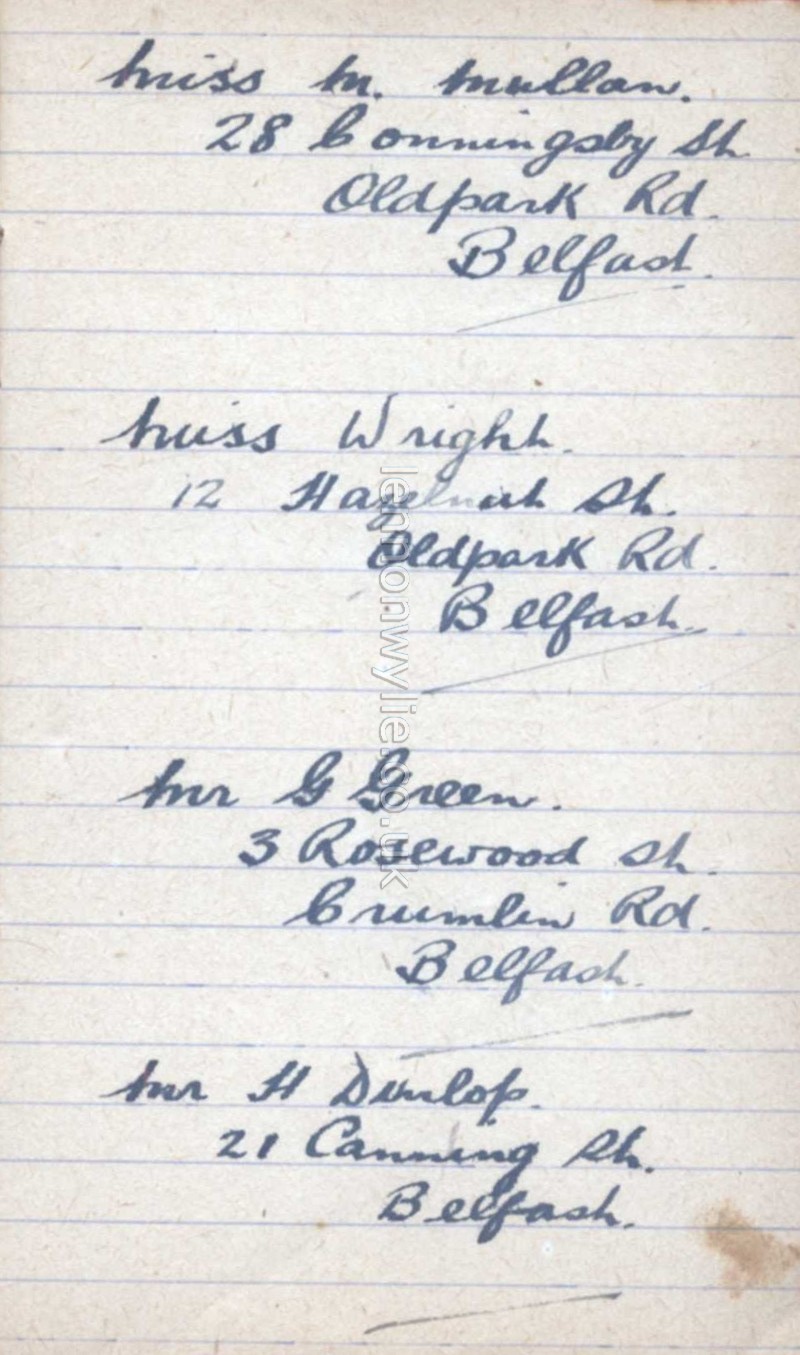 Miss M. Mullan.
28 Conningsby St
Oldpark Rd.
Belfast.
Miss Wright.
12 Hazelnut St.
Oldpark Rd.
Belfast.
Mr G Green.
3 Rosewood St.
Crumlin Rd.
Belfast.
Mr H Dunlop.
21 Canning St.
Belfast.
lennonwylie.co.uk